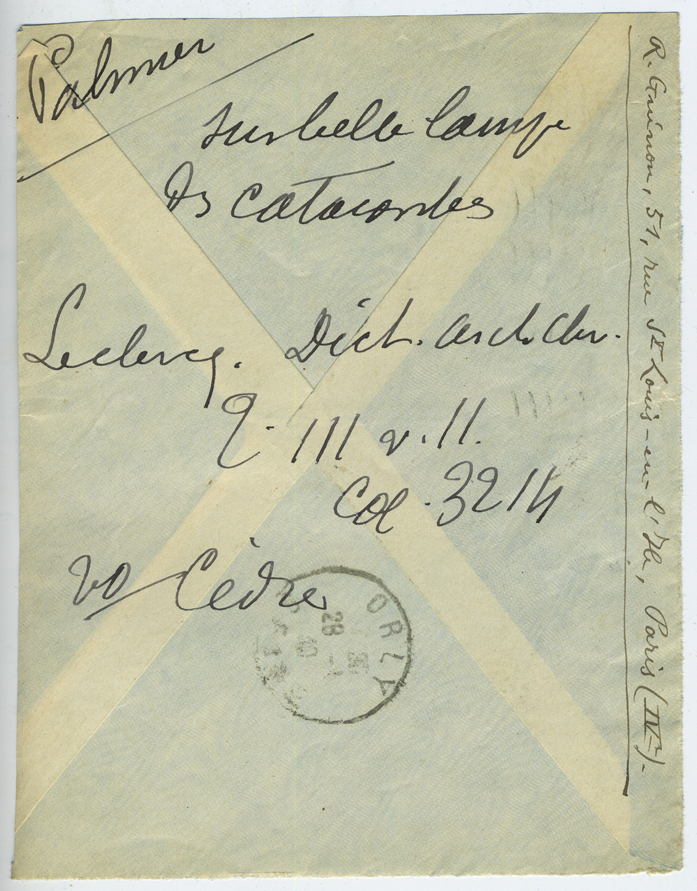 Palmier
sur belle lampe
Ds catacombes
Leclercq. Dict. arch. chr.
T. III v. II.
Col. 3214
vo Cèdre
ORLY
28
R. Guénon, 51, rue St Louis-en-l'Ile, Paris (IVe).